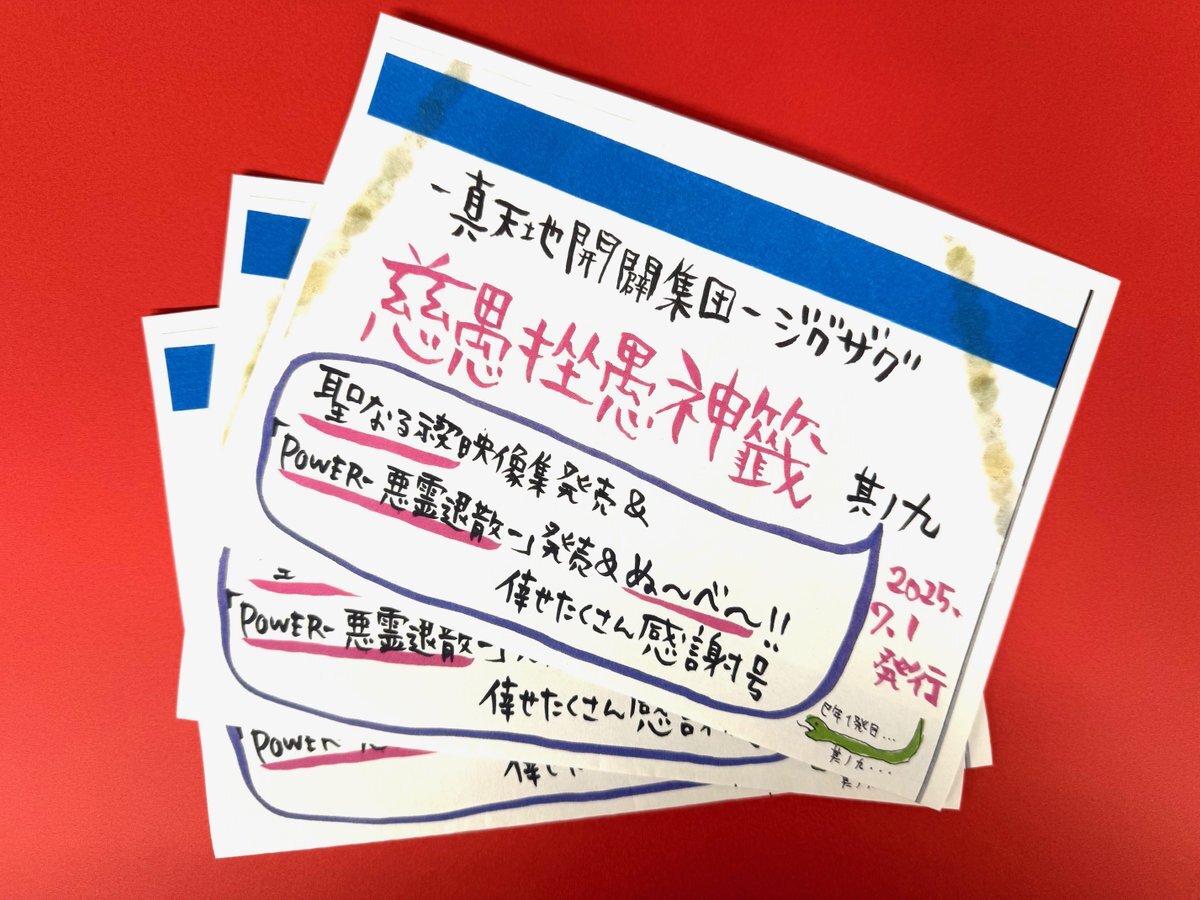 -真天地開闢集団-ジグザグ
慈愚挫愚神籤
其ノ九
聖なる禊映像集発売&
「POWER-悪霊退散-」発売&ぬ〜べ〜!!
倖せたくさん感謝号
2025.
7.1
発行
巳年1発目...
其ノ九...
「POWER-悪霊退散-」
倖せたくさん感
POWER-
倖せ
其ノ...